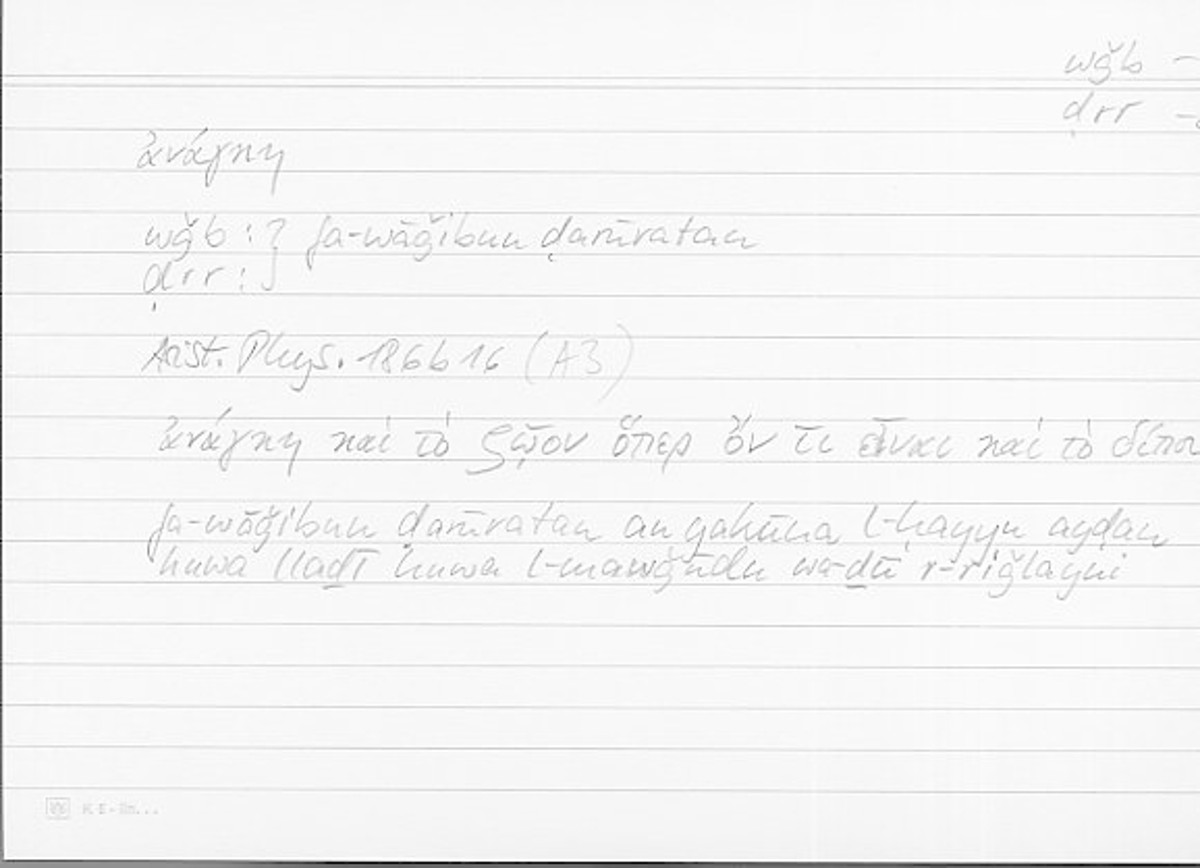 wǧb —
ḍrr —
ἀνάγκη
wǧb : } fa-wāǧibun ḍarūratan
ḍrr : }
Arist. Phys. 186b16 (A3)
ἀνάγκη καὶ τὸ ζῷον ὅπερ ὄν τι εἶναι καὶ τὸ δίπου
fa-wāǧibun ḍarūratan an yakūna l-ḥayyu ayḍan
huwa llaḏī huwa l-mawǧūdu wa-ḏū r-riǧlayni